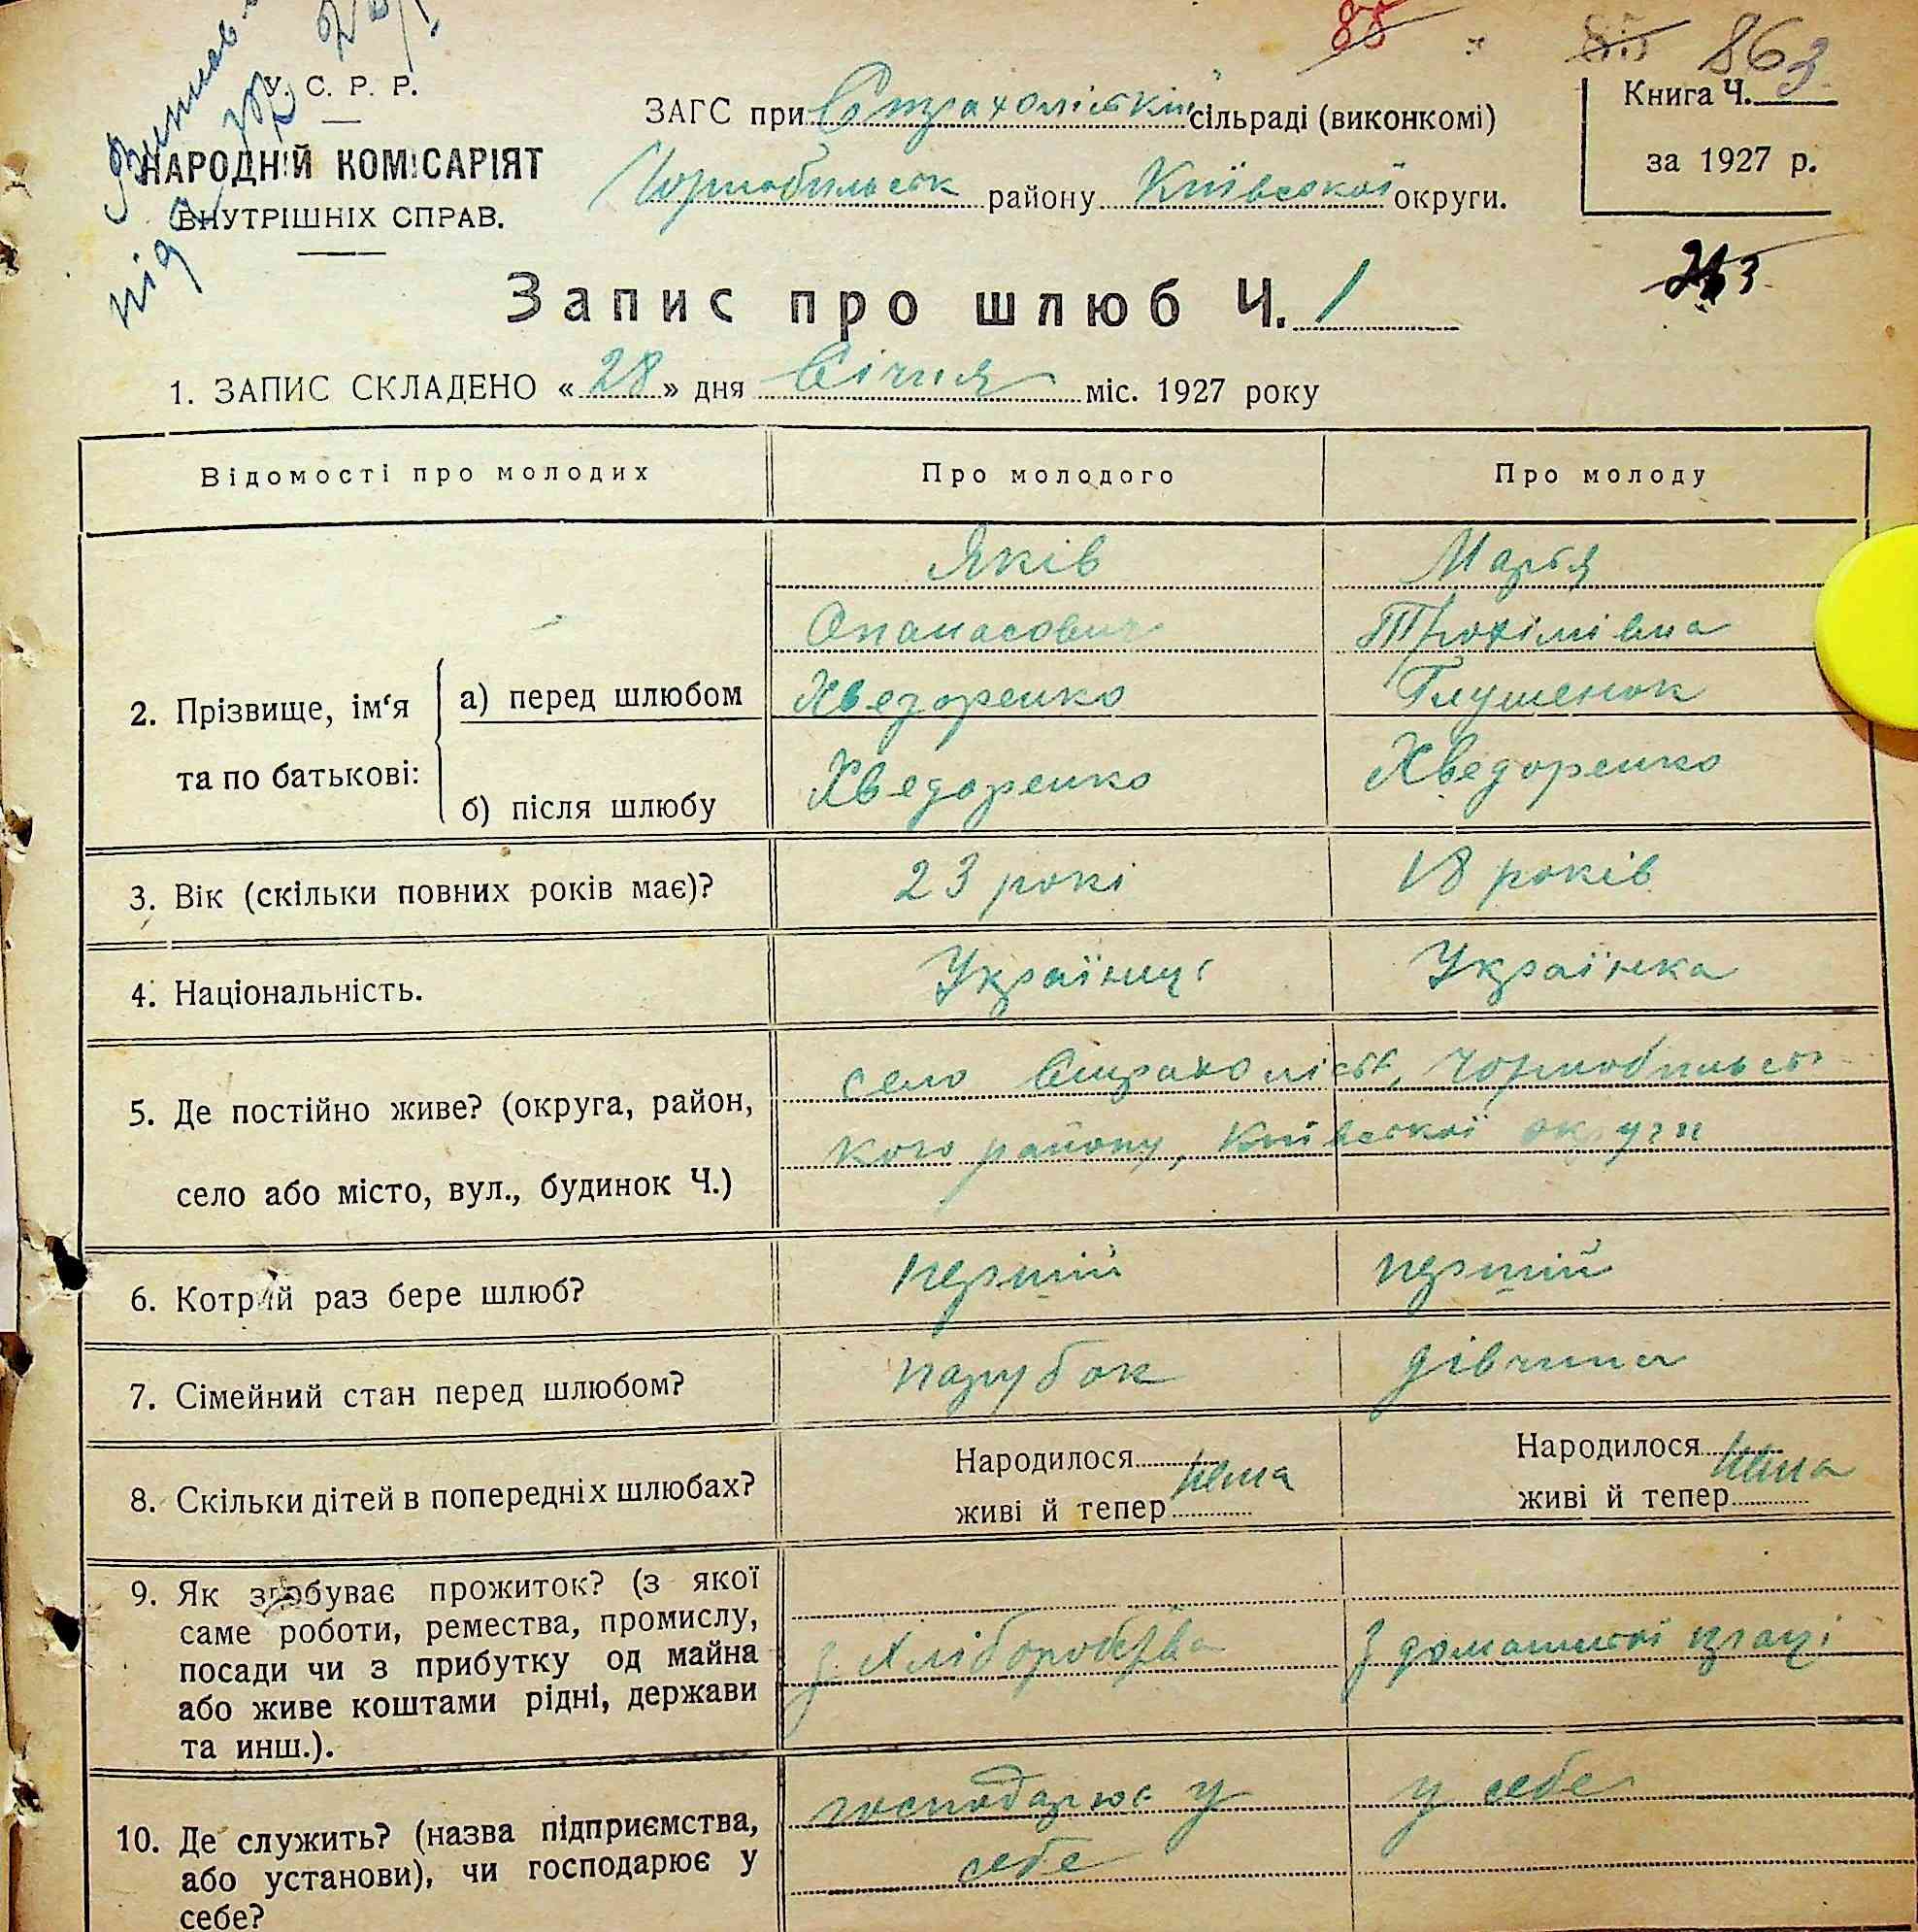 88 85 863
У. С. Р. Р.
НАРОДНІЙ КОМІСАРІЯТ
ВНУТРІШНІХ СПРАВ.
ЗАГС при Страхоліській сільраді (виконкомі)
Чорнобильськ району Київської округи.
Книга Ч.
за 1927 р.
Запис про шлюб Ч. 1
1. ЗАПИС СКЛАДЕНО « 28 » дня Січня міс. 1927 року
Відомості про молодих Про молодого Про молоду
Яків Марія
Опанасович Трохімівна
2. Прізвище, ім‘я та по батькові:
а) перед шлюбом Хведоренко Глушенок
б) після шлюбу Хведоренко Хведоренко
3. Вік (скільки повних років має)? 23 рокі 18 років
4. Національність. Українець Українка
5. Де постійно живе? (округа, район,
село або місто, вул., будинок Ч.)
село Страхолісся, Чорнобильсь
кого району, Київської округи
6. Котрий раз бере шлюб? перший перший
7. Сімейний стан перед шлюбом? парубок дівчина
8. Скільки дітей в попередніх шлюбах?
Народилося нема Народилося нема
живі й тепер живі й тепер
9. Як здобуває прожиток? (з якої
саме роботи, ремества, промислу,
посади чи з прибутку од майна
або живе коштами рідні, держави
та инш.).
з хліборобства з домашньої праці
10. Де служить? (назва підприємства,
або установи), чи господарює у
себе?
господарює у у себе
себе